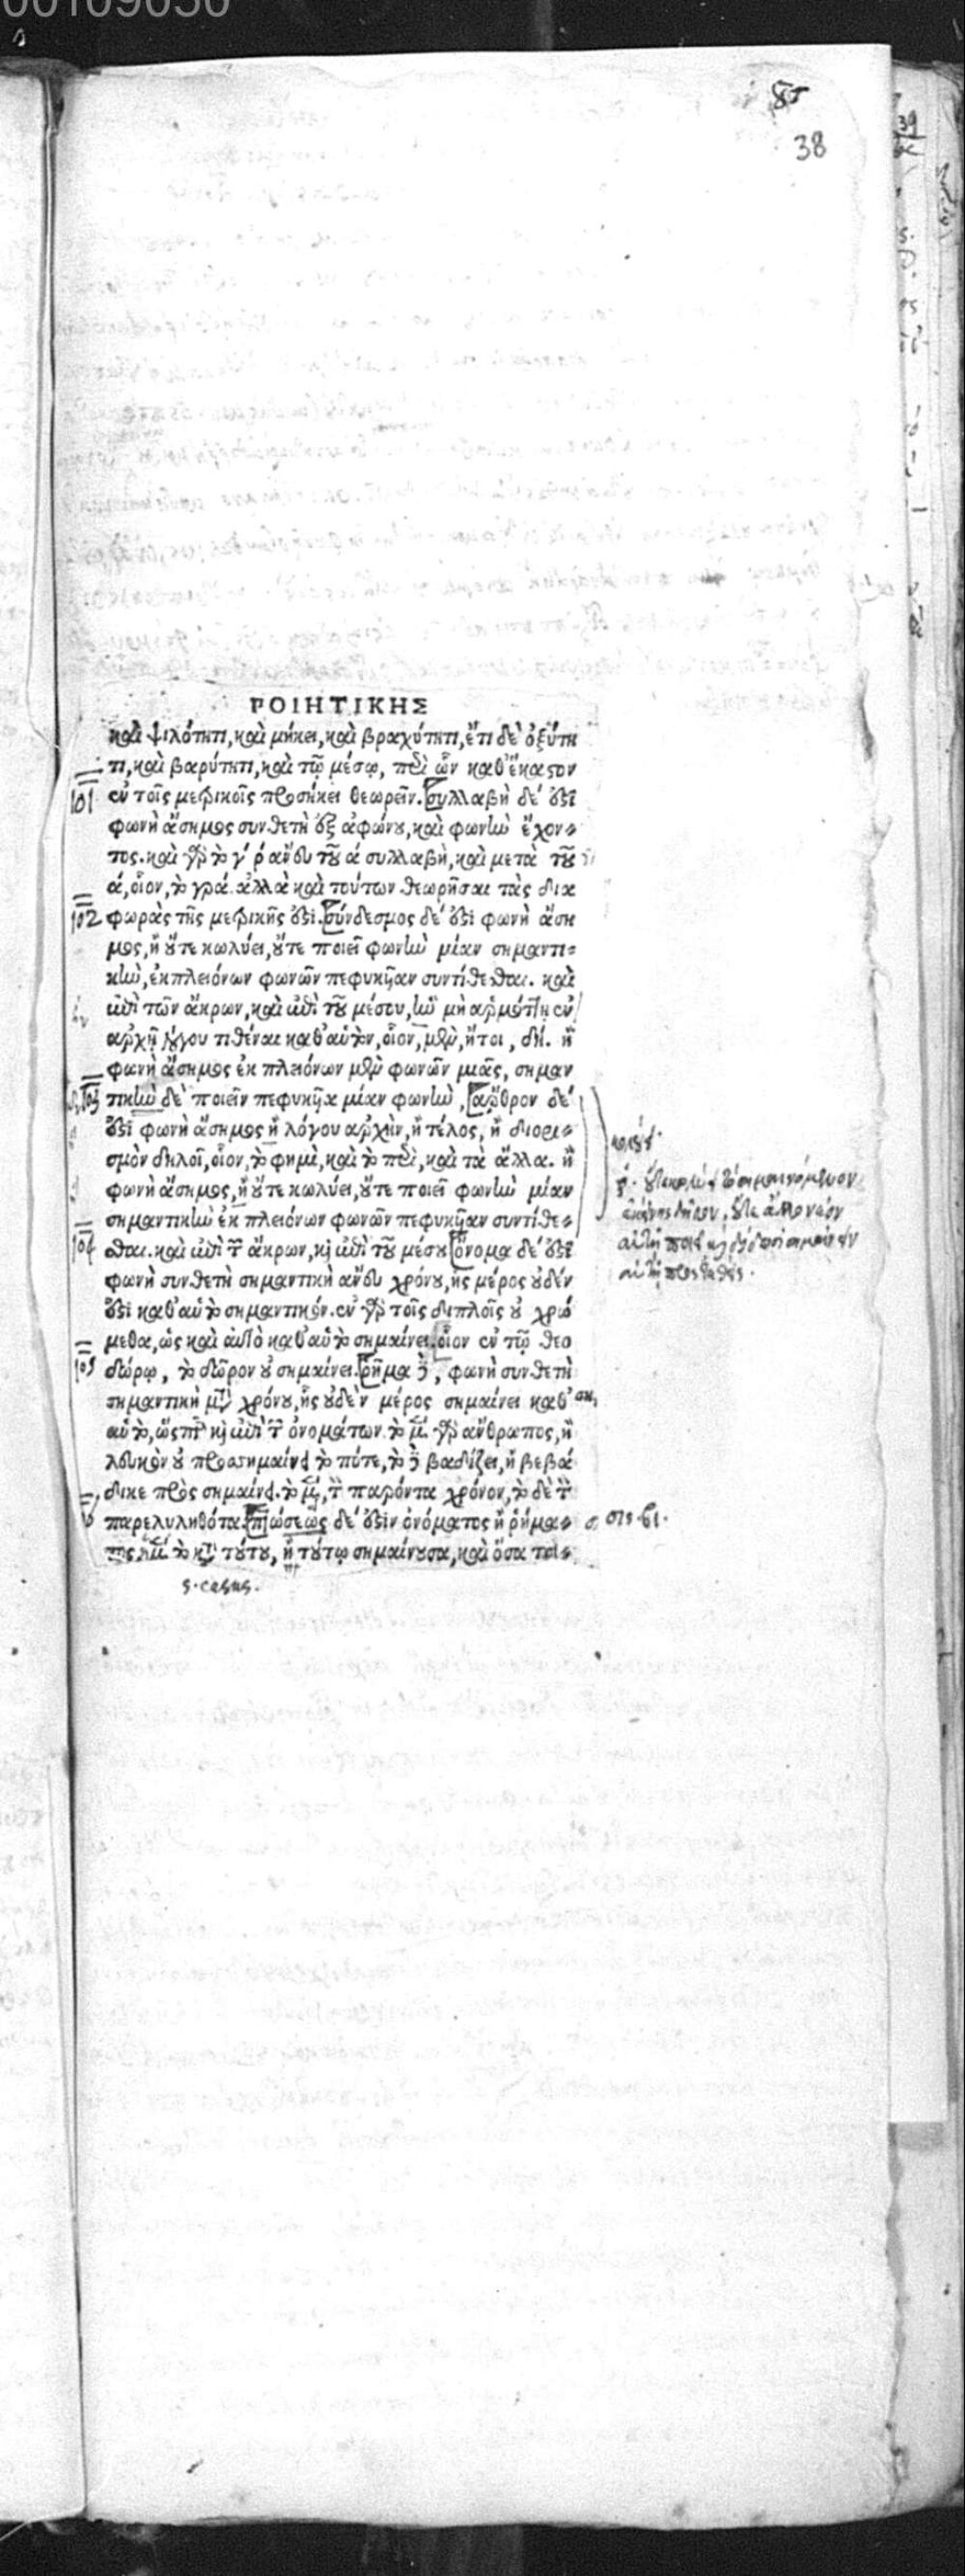 00109050
85
38
ΠΟΙΗΤΙΚΗΣ
καὶ ψιλότητι, καὶ μήκει, καὶ βραχύτητι, ἔτι δὲ ὀξύτη
τι, καὶ βαρύτητι, καὶ τῷ μέσῳ, περὶ ὧν καθ᾽ ἕκαστον
101 ἐν τοῖς μετρικοῖς προσήκει θεωρεῖν. συλλαβὴ δέ ἐστι
φωνὴ ἄσημος συνθετὴ ἐξ ἀφώνου, καὶ φωνὴν ἔχον-
τος. καὶ γὰρ τὸ γ ρ ἄνευ τοῦ ά συλλαβὴ, καὶ μετὰ τοῦ
ά, οἷον, τὸ γρά. ἀλλὰ καὶ τούτων θεωρῆσαι τὰς δια
102 φορὰς τῆς μετρικῆς ἐστι. σύνδεσμος δέ ἐστι φωνὴ ἄση
μος, ἣ οὔτε κωλύει, οὔτε ποιεῖ φωνὴν μίαν σημαντι-
κὴν, ἐκ πλειόνων φωνῶν πεφυκῦαν συντίθεσθαι. καὶ
ἐπὶ τῶν ἄκρων, καὶ ἐπὶ τοῦ μέσου, ἢν μὴ ἁρμόττῃ ἐν
ἀρχῇ λόγου τιθέναι καθ᾽ αὑτὸν, οἷον, μὲν, ἤτοι, δή. ἢ
φωνὴ ἄσημος ἐκ πλειόνων μὲν φωνῶν μιᾶς, σημαν
103 τικὴν δὲ ποιεῖν πεφυκῦα μίαν φωνὴν, ἄρθρον δέ
ἐστι φωνὴ ἄσημος ἣ λόγου ἀρχὴν, ἢ τέλος, ἢ διορι-
σμὸν δηλοῖ, οἷον, τὸ φημὶ, καὶ τὸ περὶ, καὶ τὰ ἄλλα. ἢ
φωνὴ ἄσημος, ἣ οὔτε κωλύει, οὔτε ποιεῖ φωνὴν μίαν
σημαντικὴν ἐκ πλειόνων φωνῶν πεφυκῦαν συντίθε-
104 σθαι. καὶ ἐπὶ τῶν ἄκρων, καὶ ἐπὶ τοῦ μέσου ὄνομα δέ ἐστι
φωνὴ συνθετὴ σημαντικὴ ἄνευ χρόνου, ἧς μέρος οὐδέν
ἐστι καθ᾽ αὑτὸ σημαντικόν. ἐν γὰρ τοῖς διπλοῖς οὐ χρώ
μεθα, ὡς καὶ αὐτὸ καθ᾽ αὑτὸ σημαίνει. οἷον ἐν τῷ θεο
105 δώρῳ, τὸ δῶρον οὐ σημαίνει. ῥῆμα δὲ, φωνὴ συνθετὴ
σημαντικὴ μετὰ χρόνου, ἧς οὐδὲν μέρος σημαίνει καθ᾽
αὑτὸ, ὥσπερ καὶ ἐπὶ τῶν ὀνομάτων. τὸ μὲν γὰρ ἄνθρωπος, ἢ
λευκὸν οὐ προσημαίνει τὸ πότε, τὸ δὲ βαδίζει, ἢ βεβά
δικε προς σημαίνει. τὸ μὲν, τὸν παρόντα χρόνον, τὸ δὲ τὸν
παρεληλυθότα. πτώσεως δέ ἐστιν ὀνόματος ἢ ῥήμα-
τος, ἡ μὲν τὸ κατὰ τούτου, ἢ τούτῳ σημαίνουσα, καὶ ὅσα τοι-
s. casus.